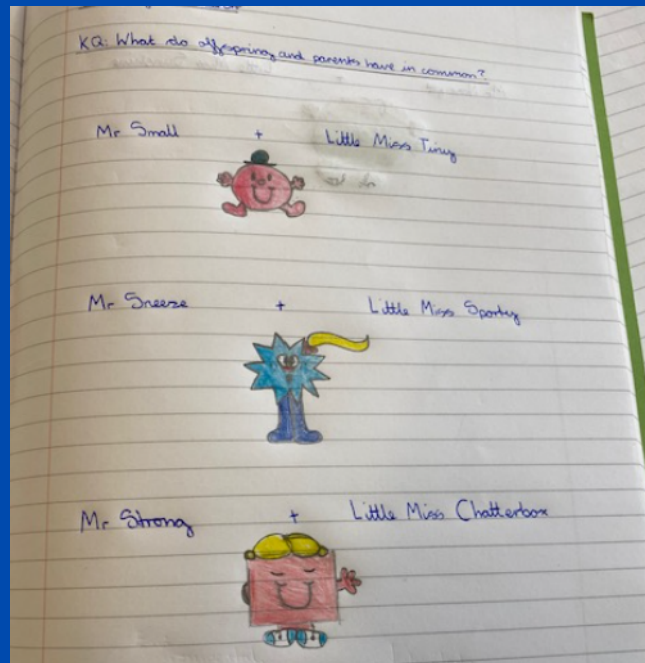 KQ: What do offspring and parents have in common?
Mr Small + Little Miss Tiny
Mr Sneeze + Little Miss Sporty
Mr Strong + Little Miss Chatterbox